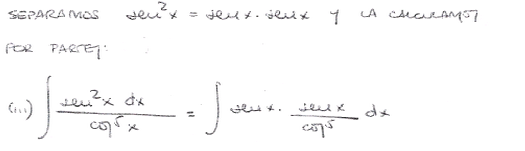 SEPARAMOS sen²x = sen x . sen x Y LA CALCULAMOS
POR PARTES:
(iii) ∫ sen²x dx / cos⁵x = ∫ sen x . sen x / cos⁵ dx